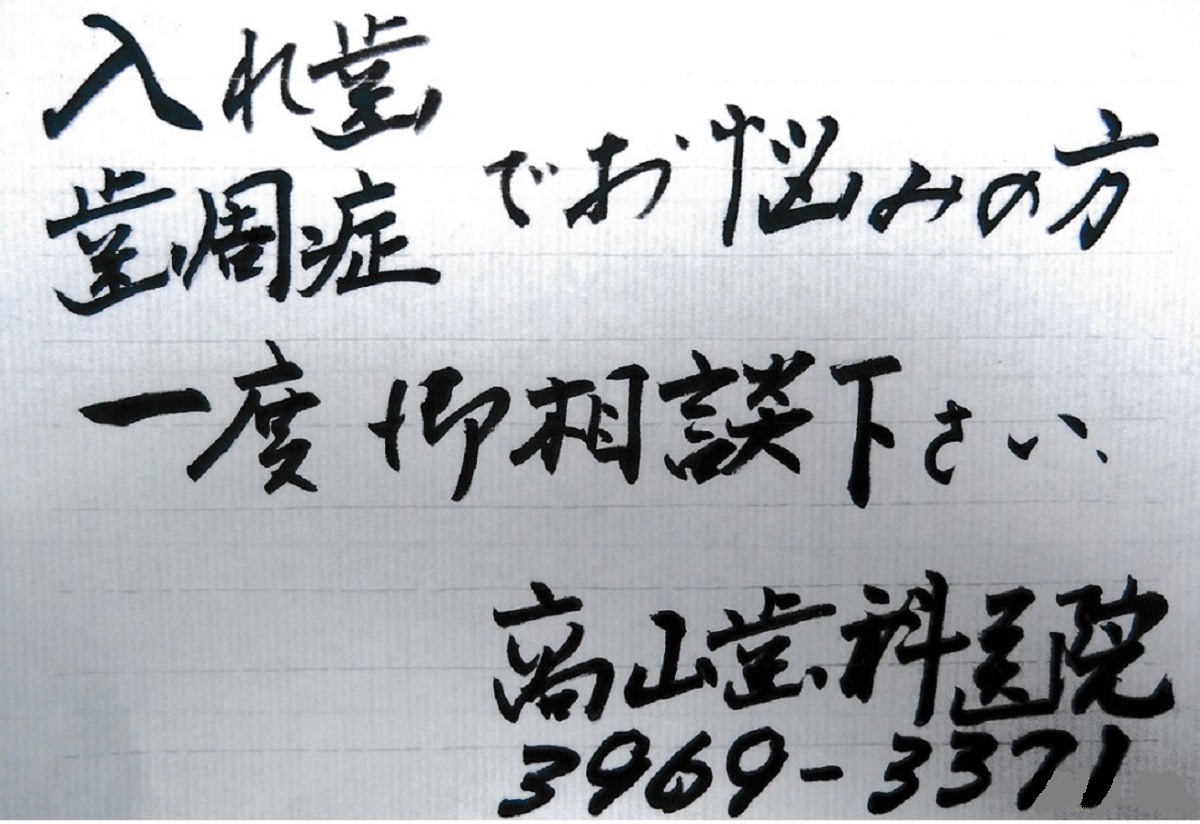 入れ歯
歯周症
でお悩みの方
一度御相談下さい、
高山歯科医院
3969-3371